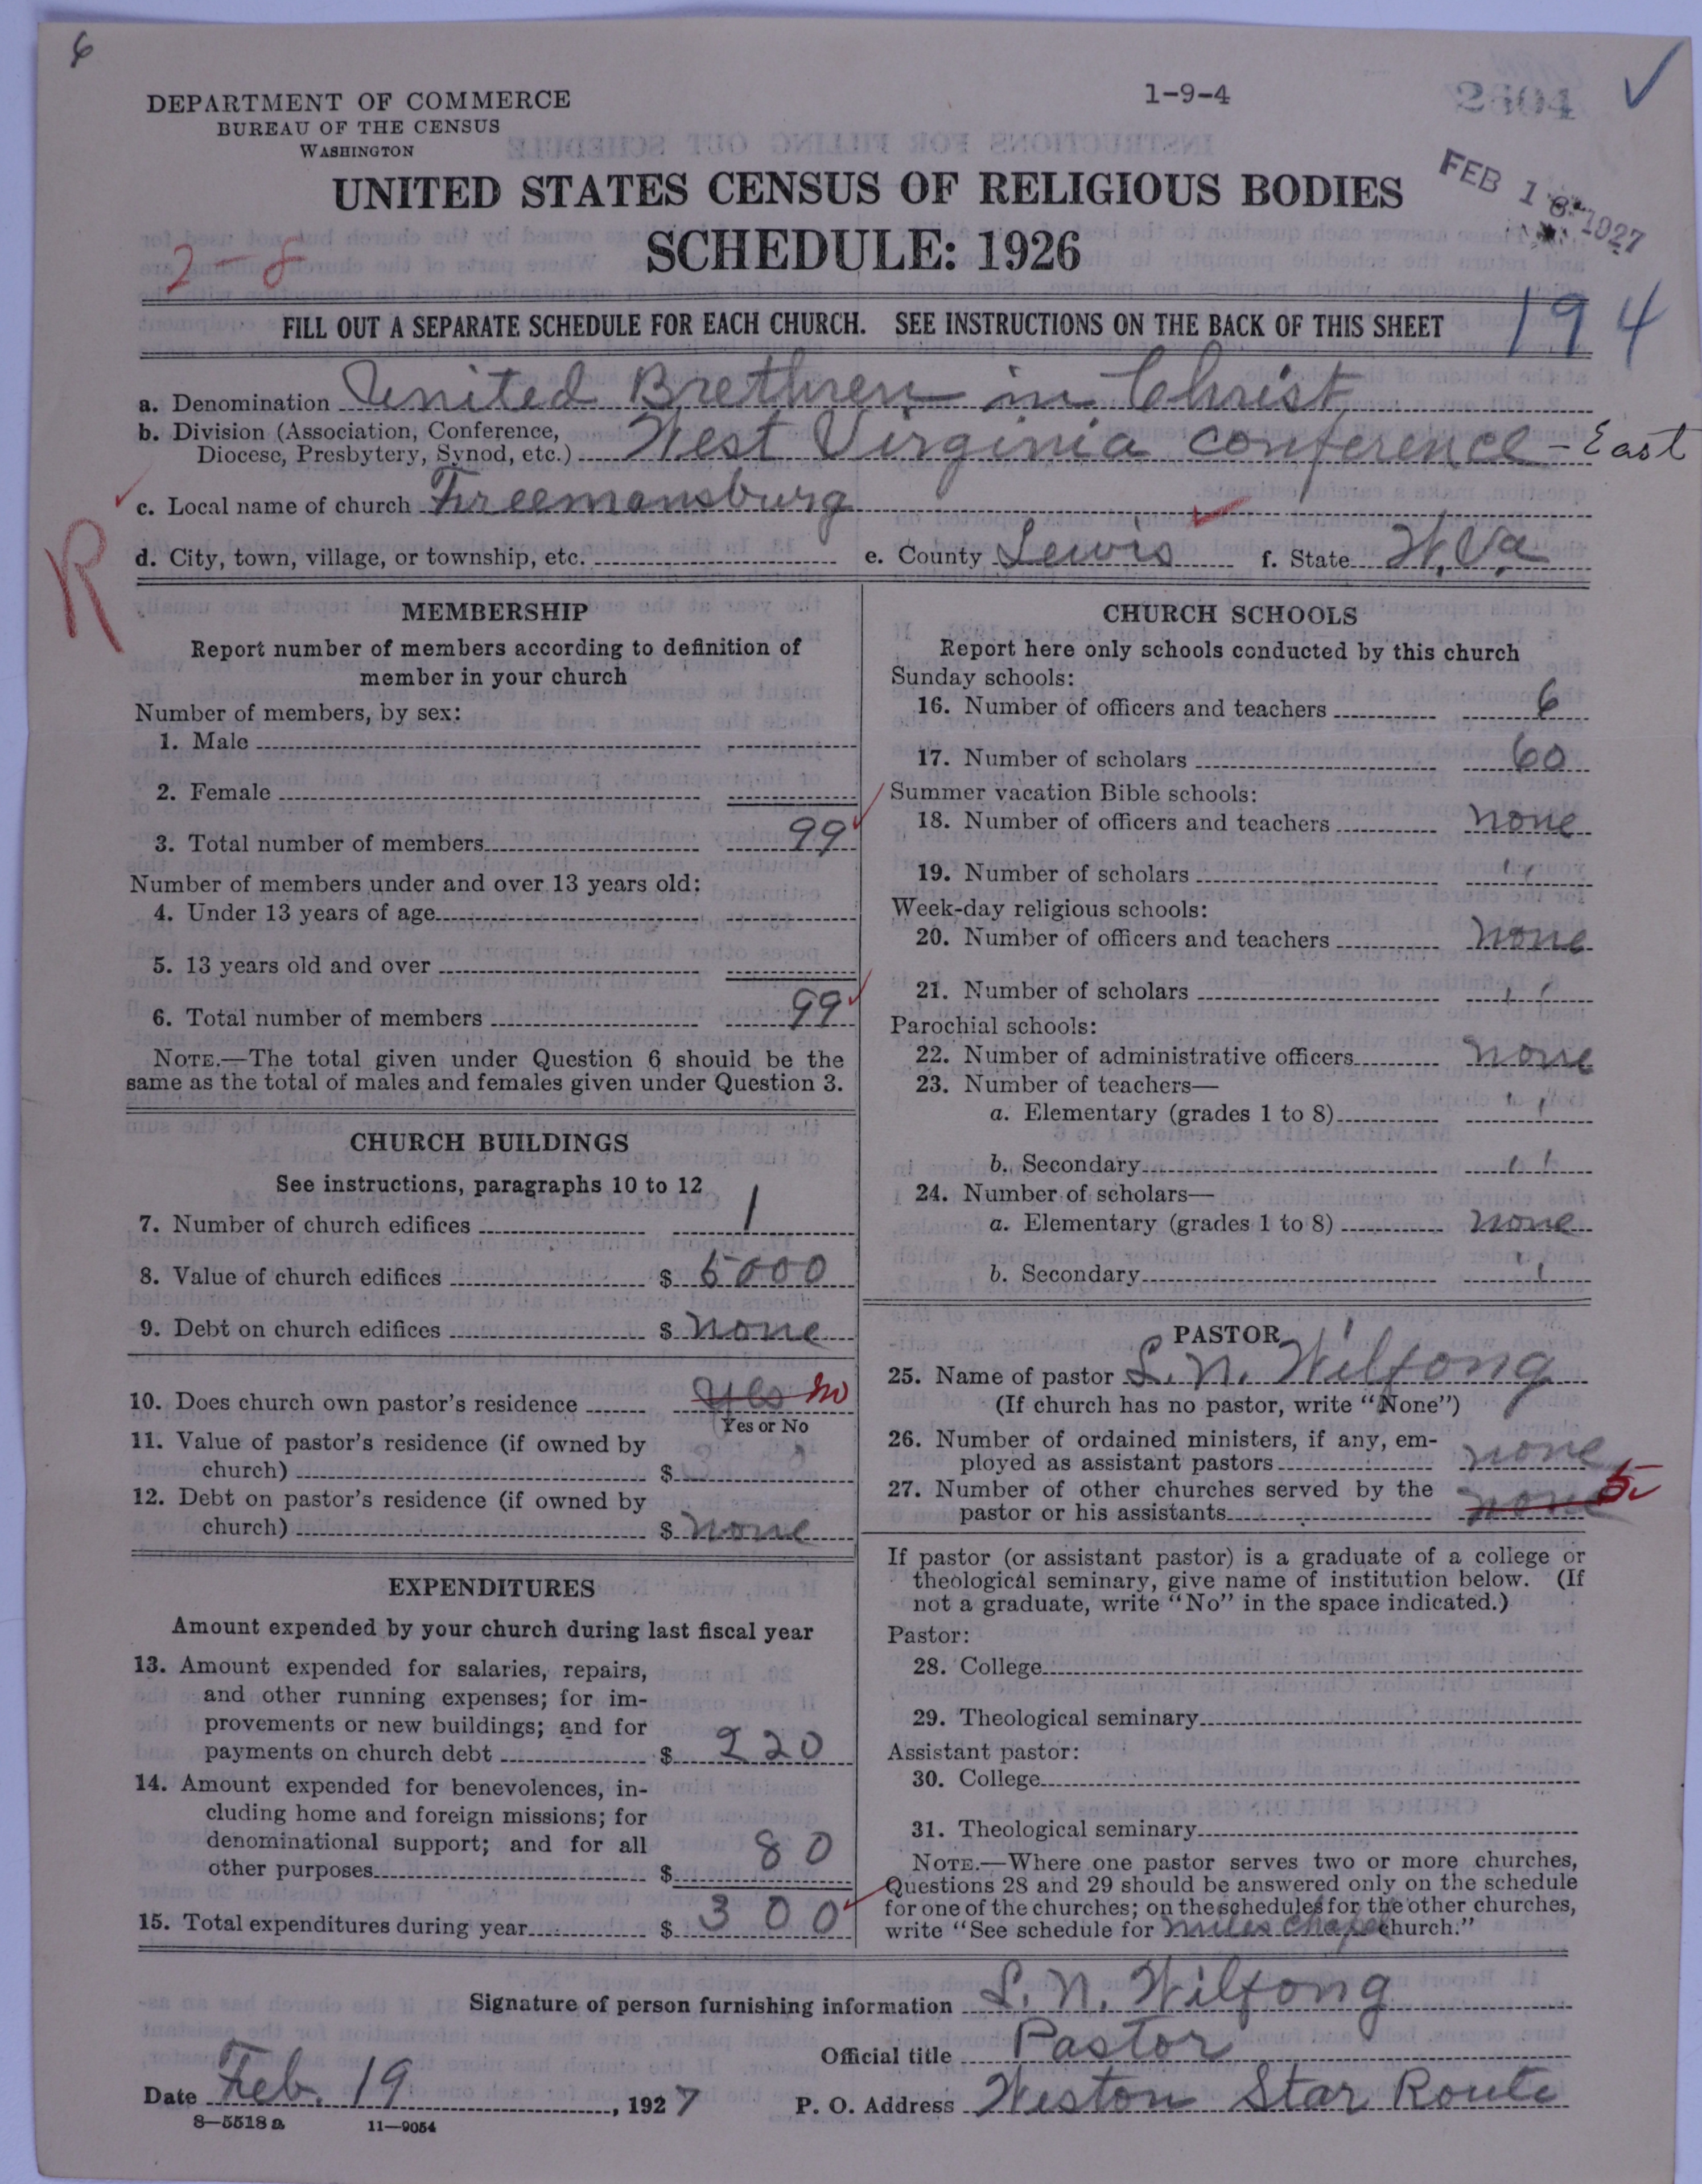 6
DEPARTMENT OF COMMERCE
BUREAU OF THE CENSUS
WASHINGTON
1-9-4
2604
FEB 18 1927
UNITED STATES CENSUS OF RELIGIOUS BODIES
SCHEDULE: 1926
2-8
194
FILL OUT A SEPARATE SCHEDULE FOR EACH CHURCH. SEE INSTRUCTIONS ON THE BACK OF THIS SHEET
a. Denomination United Brethren in Christ
b. Division (Association, Conference,
Diocese, Presbytery, Synod, etc.) West Virginia conference - East
c. Local name of church Freemansburg
R
d. City, town, village, or township, etc. e. County Lewis f. State W.Va
MEMBERSHIP
Report number of members according to definition of
member in your church
Number of members, by sex:
1. Male
2. Female
3. Total number of members 99
Number of members under and over 13 years old:
4. Under 13 years of age
5. 13 years old and over
6. Total number of members 99
NOTE.—The total given under Question 6 should be the
same as the total of males and females given under Question 3.
CHURCH BUILDINGS
See instructions, paragraphs 10 to 12
7. Number of church edifices 1
8. Value of church edifices $ 5000
9. Debt on church edifices $ none
10. Does church own pastor's residence yes no
Yes or No
11. Value of pastor's residence (if owned by
church) $
12. Debt on pastor's residence (if owned by
church) $ none
EXPENDITURES
Amount expended by your church during last fiscal year
13. Amount expended for salaries, repairs,
and other running expenses; for im-
provements or new buildings; and for
payments on church debt $ 220
14. Amount expended for benevolences, in-
cluding home and foreign missions; for
denominational support; and for all
other purposes $ 80
15. Total expenditures during year $ 300
CHURCH SCHOOLS
Report here only schools conducted by this church
Sunday schools:
16. Number of officers and teachers 6
17. Number of scholars 60
Summer vacation Bible schools:
18. Number of officers and teachers none
19. Number of scholars ''
Week-day religious schools:
20. Number of officers and teachers none
21. Number of scholars ''
Parochial schools:
22. Number of administrative officers none
23. Number of teachers—
a. Elementary (grades 1 to 8) ''
b. Secondary ''
24. Number of scholars—
a. Elementary (grades 1 to 8) none
b. Secondary ''
PASTOR
25. Name of pastor L. N. Wilfong
(If church has no pastor, write "None")
26. Number of ordained ministers, if any, em-
ployed as assistant pastors none
27. Number of other churches served by the
pastor or his assistants none 5
If pastor (or assistant pastor) is a graduate of a college or
theological seminary, give name of institution below. (If
not a graduate, write "No" in the space indicated.)
Pastor:
28. College
29. Theological seminary
Assistant pastor:
30. College
31. Theological seminary
NOTE.—Where one pastor serves two or more churches,
Questions 28 and 29 should be answered only on the schedule
for one of the churches; on the schedules for the other churches,
write "See schedule for miles chapel church."
Signature of person furnishing information L. N. Wilfong
Official title Pastor
Date Feb. 19, 1927 P. O. Address Weston Star Route
8—5518a 11—9054